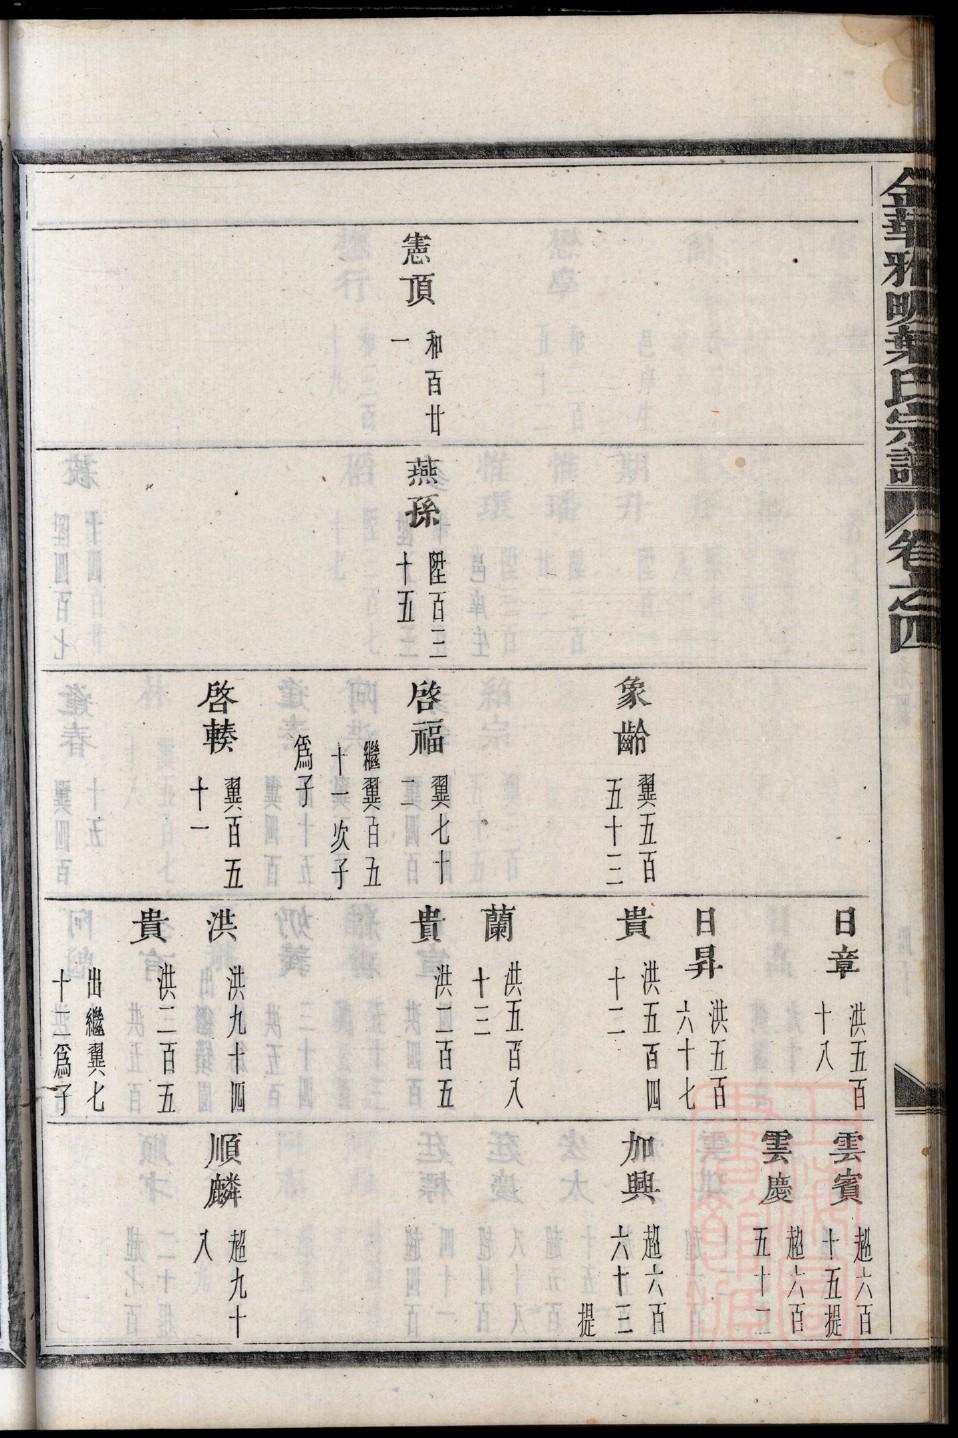 金華雅畈葉氏宗譜 卷之四
憲頂 和百廿一
燕孫 陞百三十五
象齡 翼五百五十三
啓福 翼七十二
繼翼百五十一次子爲子
啓轃 翼百五十一
日章 洪五百十八
日昇 洪五百六十七
貴 洪五百四十二
蘭 洪五百八十三
貴 洪二百五
洪 洪九十四
貴 洪二百五
出繼翼七十二爲子
雲賓 趙六百十五提
雲慶 趙六百五十二
加興 趙六百六十三提
順麟 趙九十八